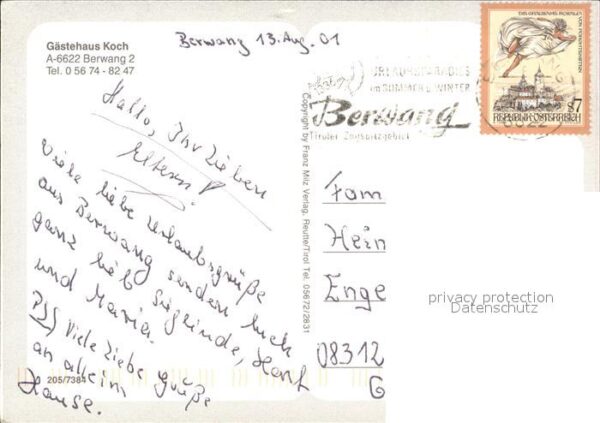 Gästehaus Koch
A-6622 Berwang 2
Tel. 0 56 74 - 82 47
Berwang 13. Aug. 01
Hallo, Ihr Lieben
Eltern!
Viele liebe Urlaubsgrüße
aus Berwang senden Euch
ganz lieb Sieglinde, Horst
und Maria.
PS) Viele liebe Grüße
an alle im
Hause.
205/7384
Copyright by Franz Milz Verlag, Reutte/Tirol Tel. 05672/2831
URLAUBSPARADIES
IM SOMMER u. WINTER
Berwang
Tiroler Zugspitzgebiet
6622
VON FORCHTENSTEIN
s7
REPUBLIK ÖSTERREICH
Fam
Hein
Enge
08312
G
privacy protection
Datenschutz